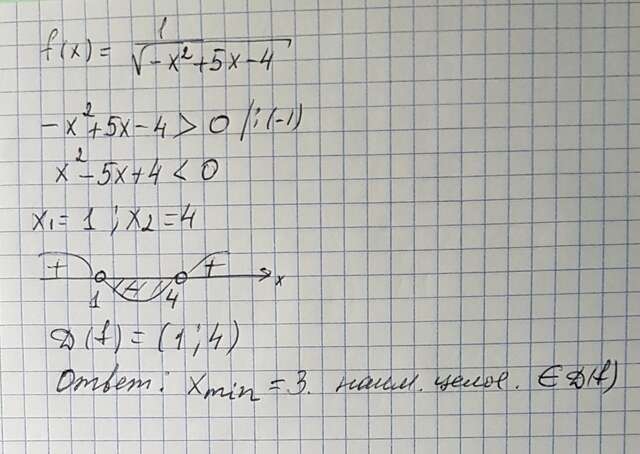 f(x) = 1/√(-x²+5x-4)
-x²+5x-4 > 0 /:(-1)
x²-5x+4 < 0
x₁ = 1 ; x₂ = 4
+ - + x
1 4
D(f) = (1; 4)
Ответ: x_min = 3. наим. целое. ∈ D(f)